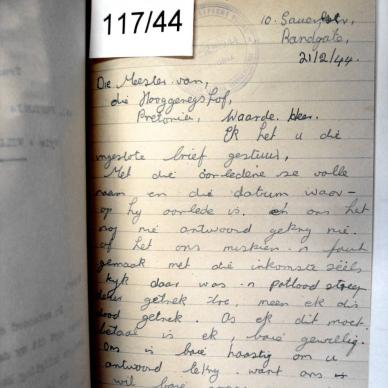 117/44
10. Sauer
Randgate,
21/2/44.
Die Meester van,
die Hooggeregshof,
Pretoria, Waarde Heer.
Ek het u die
ingeslote brief gestuur,
Met die oorledene se volle
naam en die datum waar-
op hy oorlede is. en ons het
nog nie antwoord gekry nie.
of het ons miskien 'n fout
gemaak met die inkomste seëls
kyk daar was 'n potlood streep
deur getrek toe, meen ek dis
dood getrek. As ek dit moet
betaal is ek, baie gewillig.
Ons is baie haastig om u
antwoord te kry. want ons
wil baie